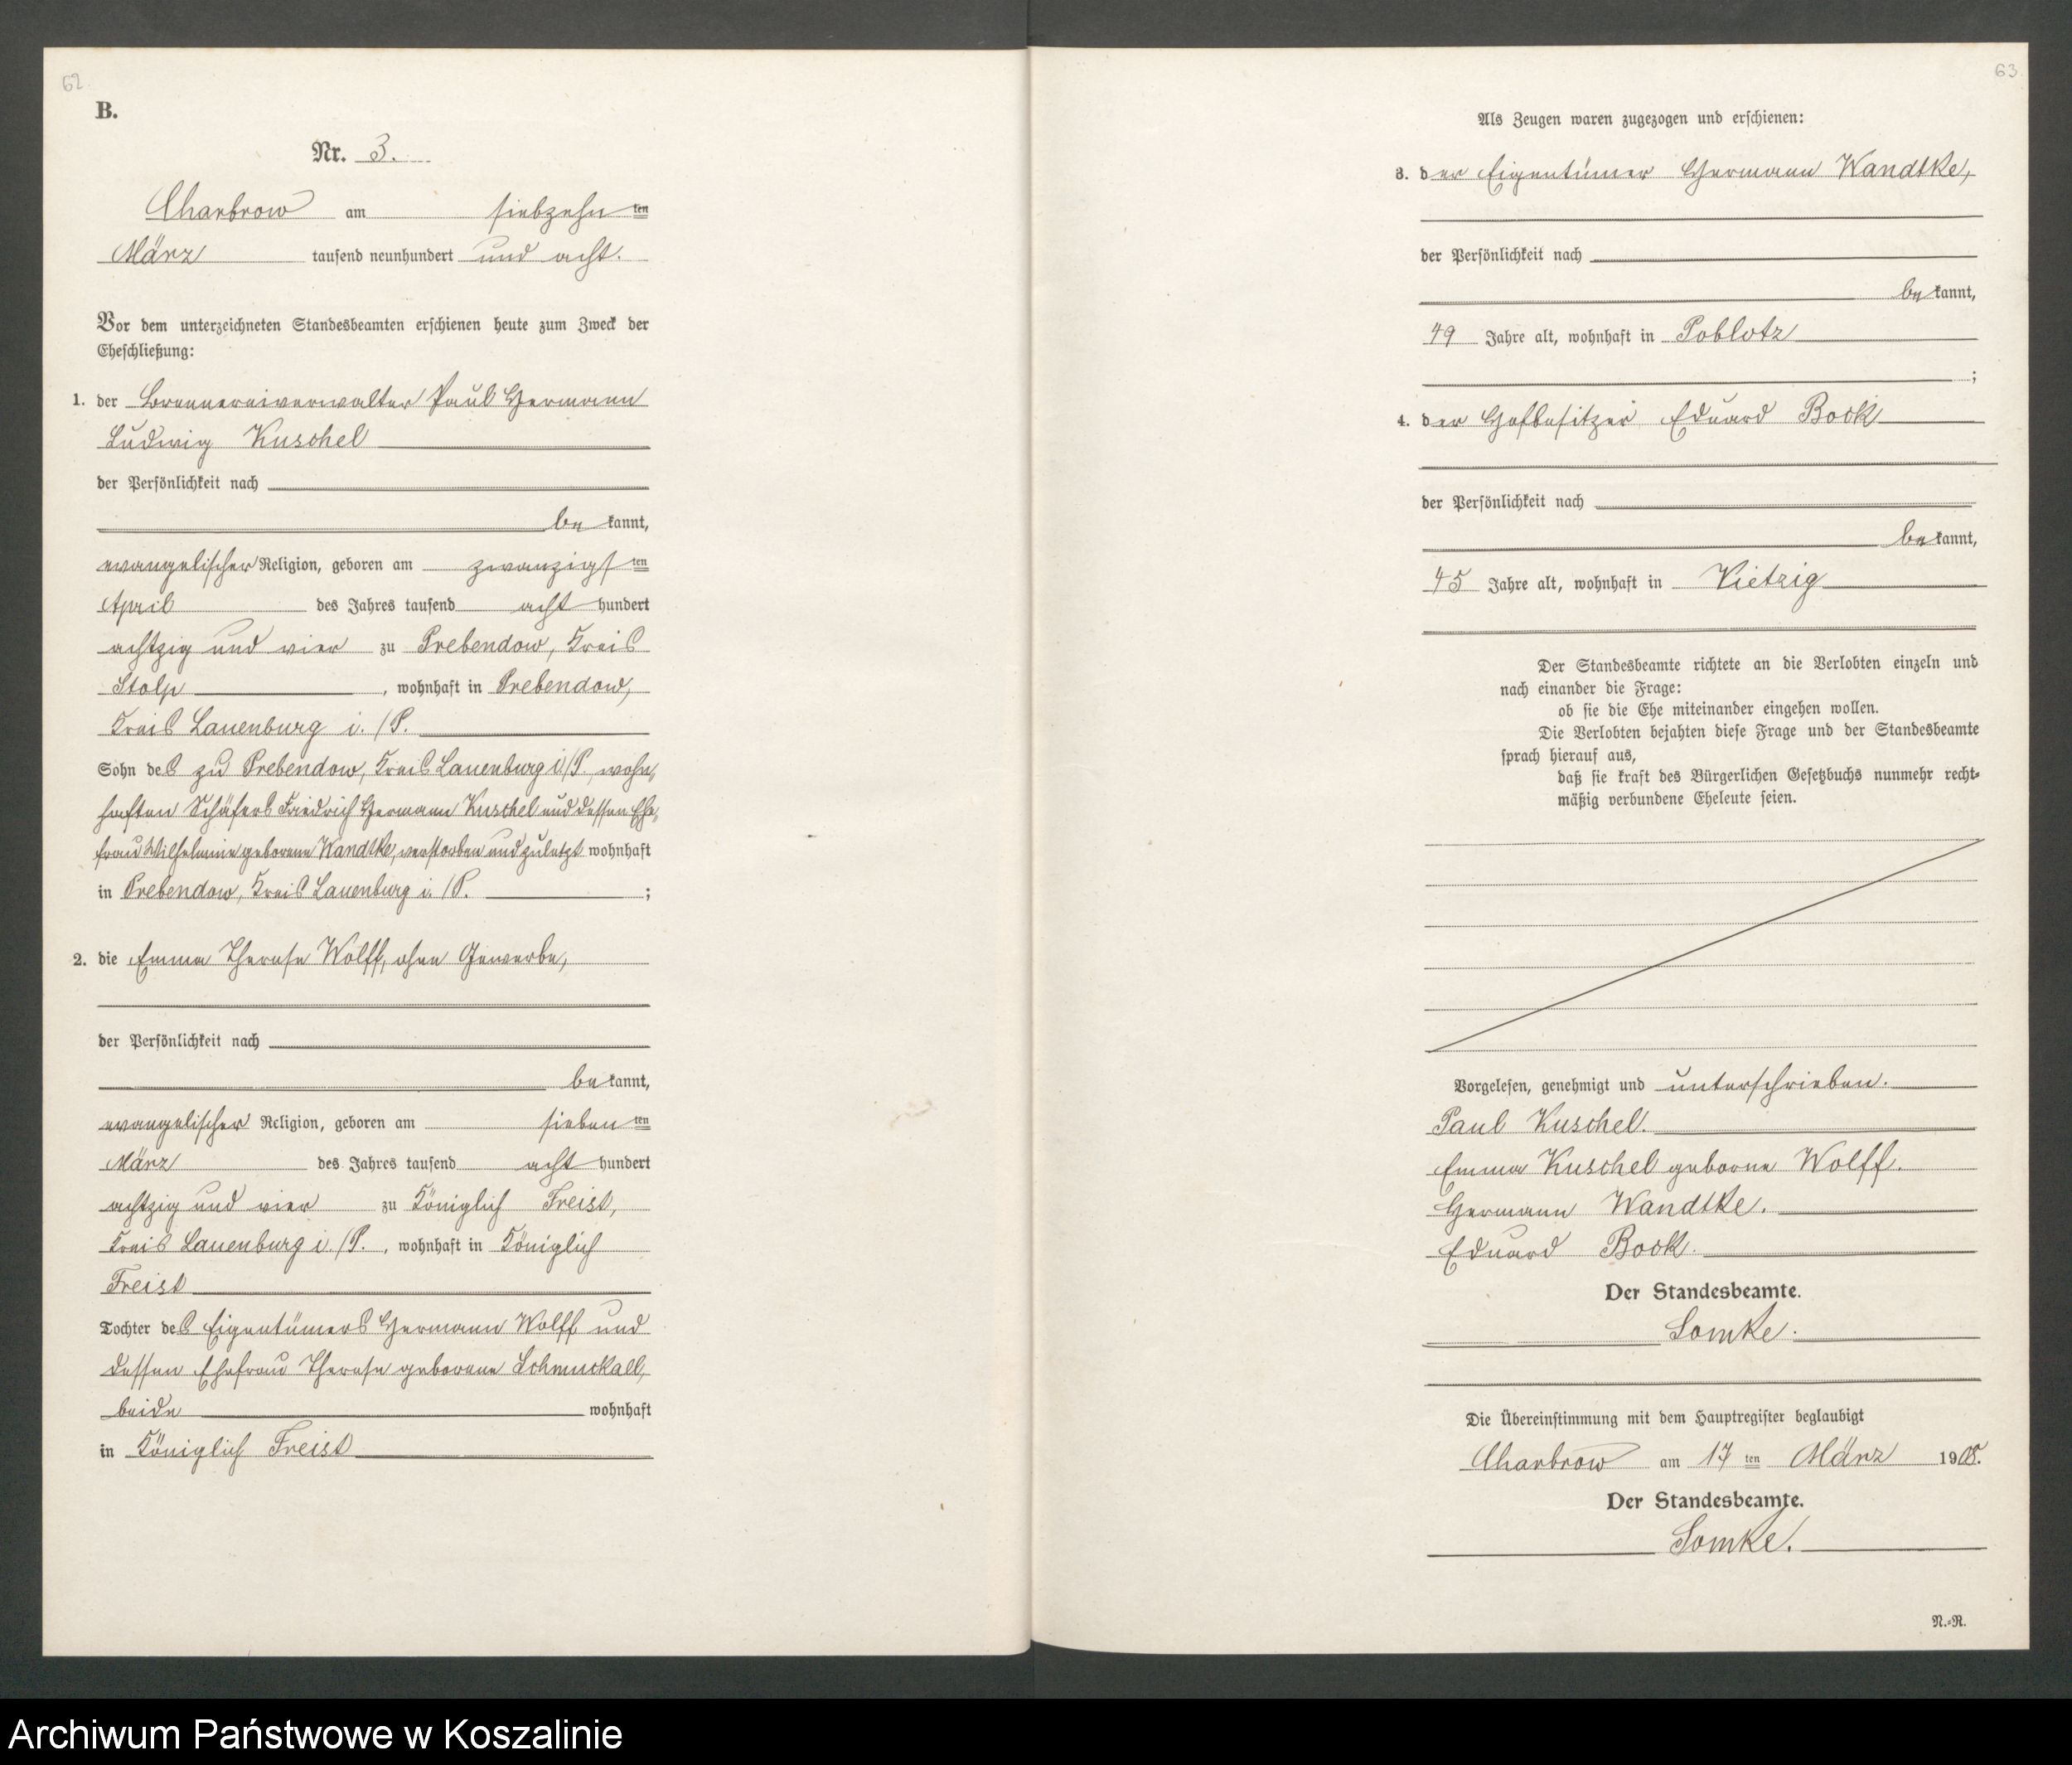 62
B.
Nr. 3.
Charbrow am siebzehn ten
März tausend neunhundert und acht.
Vor dem unterzeichneten Standesbeamten erschienen heute zum Zweck der
Eheschließung:
1. der Brennereiverwalter Paul Hermann
Ludwig Kuschel
der Persönlichkeit nach
be kannt,
evangelischer Religion, geboren am zwanzigsten
April des Jahres tausend acht hundert
achtzig und vier zu Prebendow, Kreis
Stolp, wohnhaft in Prebendow,
Kreis Lauenburg i./P.
Sohn des zu Prebendow, Kreis Lauenburg i/P. wohn-
haften Schäfers Friedrich Hermann Kuschel und dessen Ehe-
frau Wilhelmine geborene Wandtke, verstorben und zuletzt wohnhaft
in Prebendow, Kreis Lauenburg i./P. ;
2. die Emma Therese Wolff, ohne Gewerbe,
der Persönlichkeit nach
be kannt,
evangelischer Religion, geboren am sieben ten
März des Jahres tausend acht hundert
achtzig und vier zu Königlich Freist,
Kreis Lauenburg i./P. , wohnhaft in Königlich
Freist
Tochter des Eigentümers Hermann Wolff und
dessen Ehefrau Therese geborene Schmuckall,
beide wohnhaft
in Königlich Freist
63
Als Zeugen waren zugezogen und erschienen:
3. der Eigentümer Hermann Wandtke,
der Persönlichkeit nach
be kannt,
49 Jahre alt, wohnhaft in Poblotz
;
4. der Hofbesitzer Eduard Bock
der Persönlichkeit nach
be kannt,
45 Jahre alt, wohnhaft in Vietzig
Der Standesbeamte richtete an die Verlobten einzeln und
nach einander die Frage:
ob sie die Ehe miteinander eingehen wollen.
Die Verlobten bejahten diese Frage und der Standesbeamte
sprach hierauf aus,
daß sie kraft des Bürgerlichen Gesetzbuchs nunmehr recht-
mäßig verbundene Eheleute seien.
Vorgelesen, genehmigt und unterschrieben.
Paul Kuschel.
Emma Kuschel geborne Wolff.
Hermann Wandtke.
Eduard Bock.
Der Standesbeamte.
Somke.
Die Übereinstimmung mit dem Hauptregister beglaubigt
Charbrow am 17 ten März 1908.
Der Standesbeamte.
Somke.
N.-R.
Archiwum Państwowe w Koszalinie